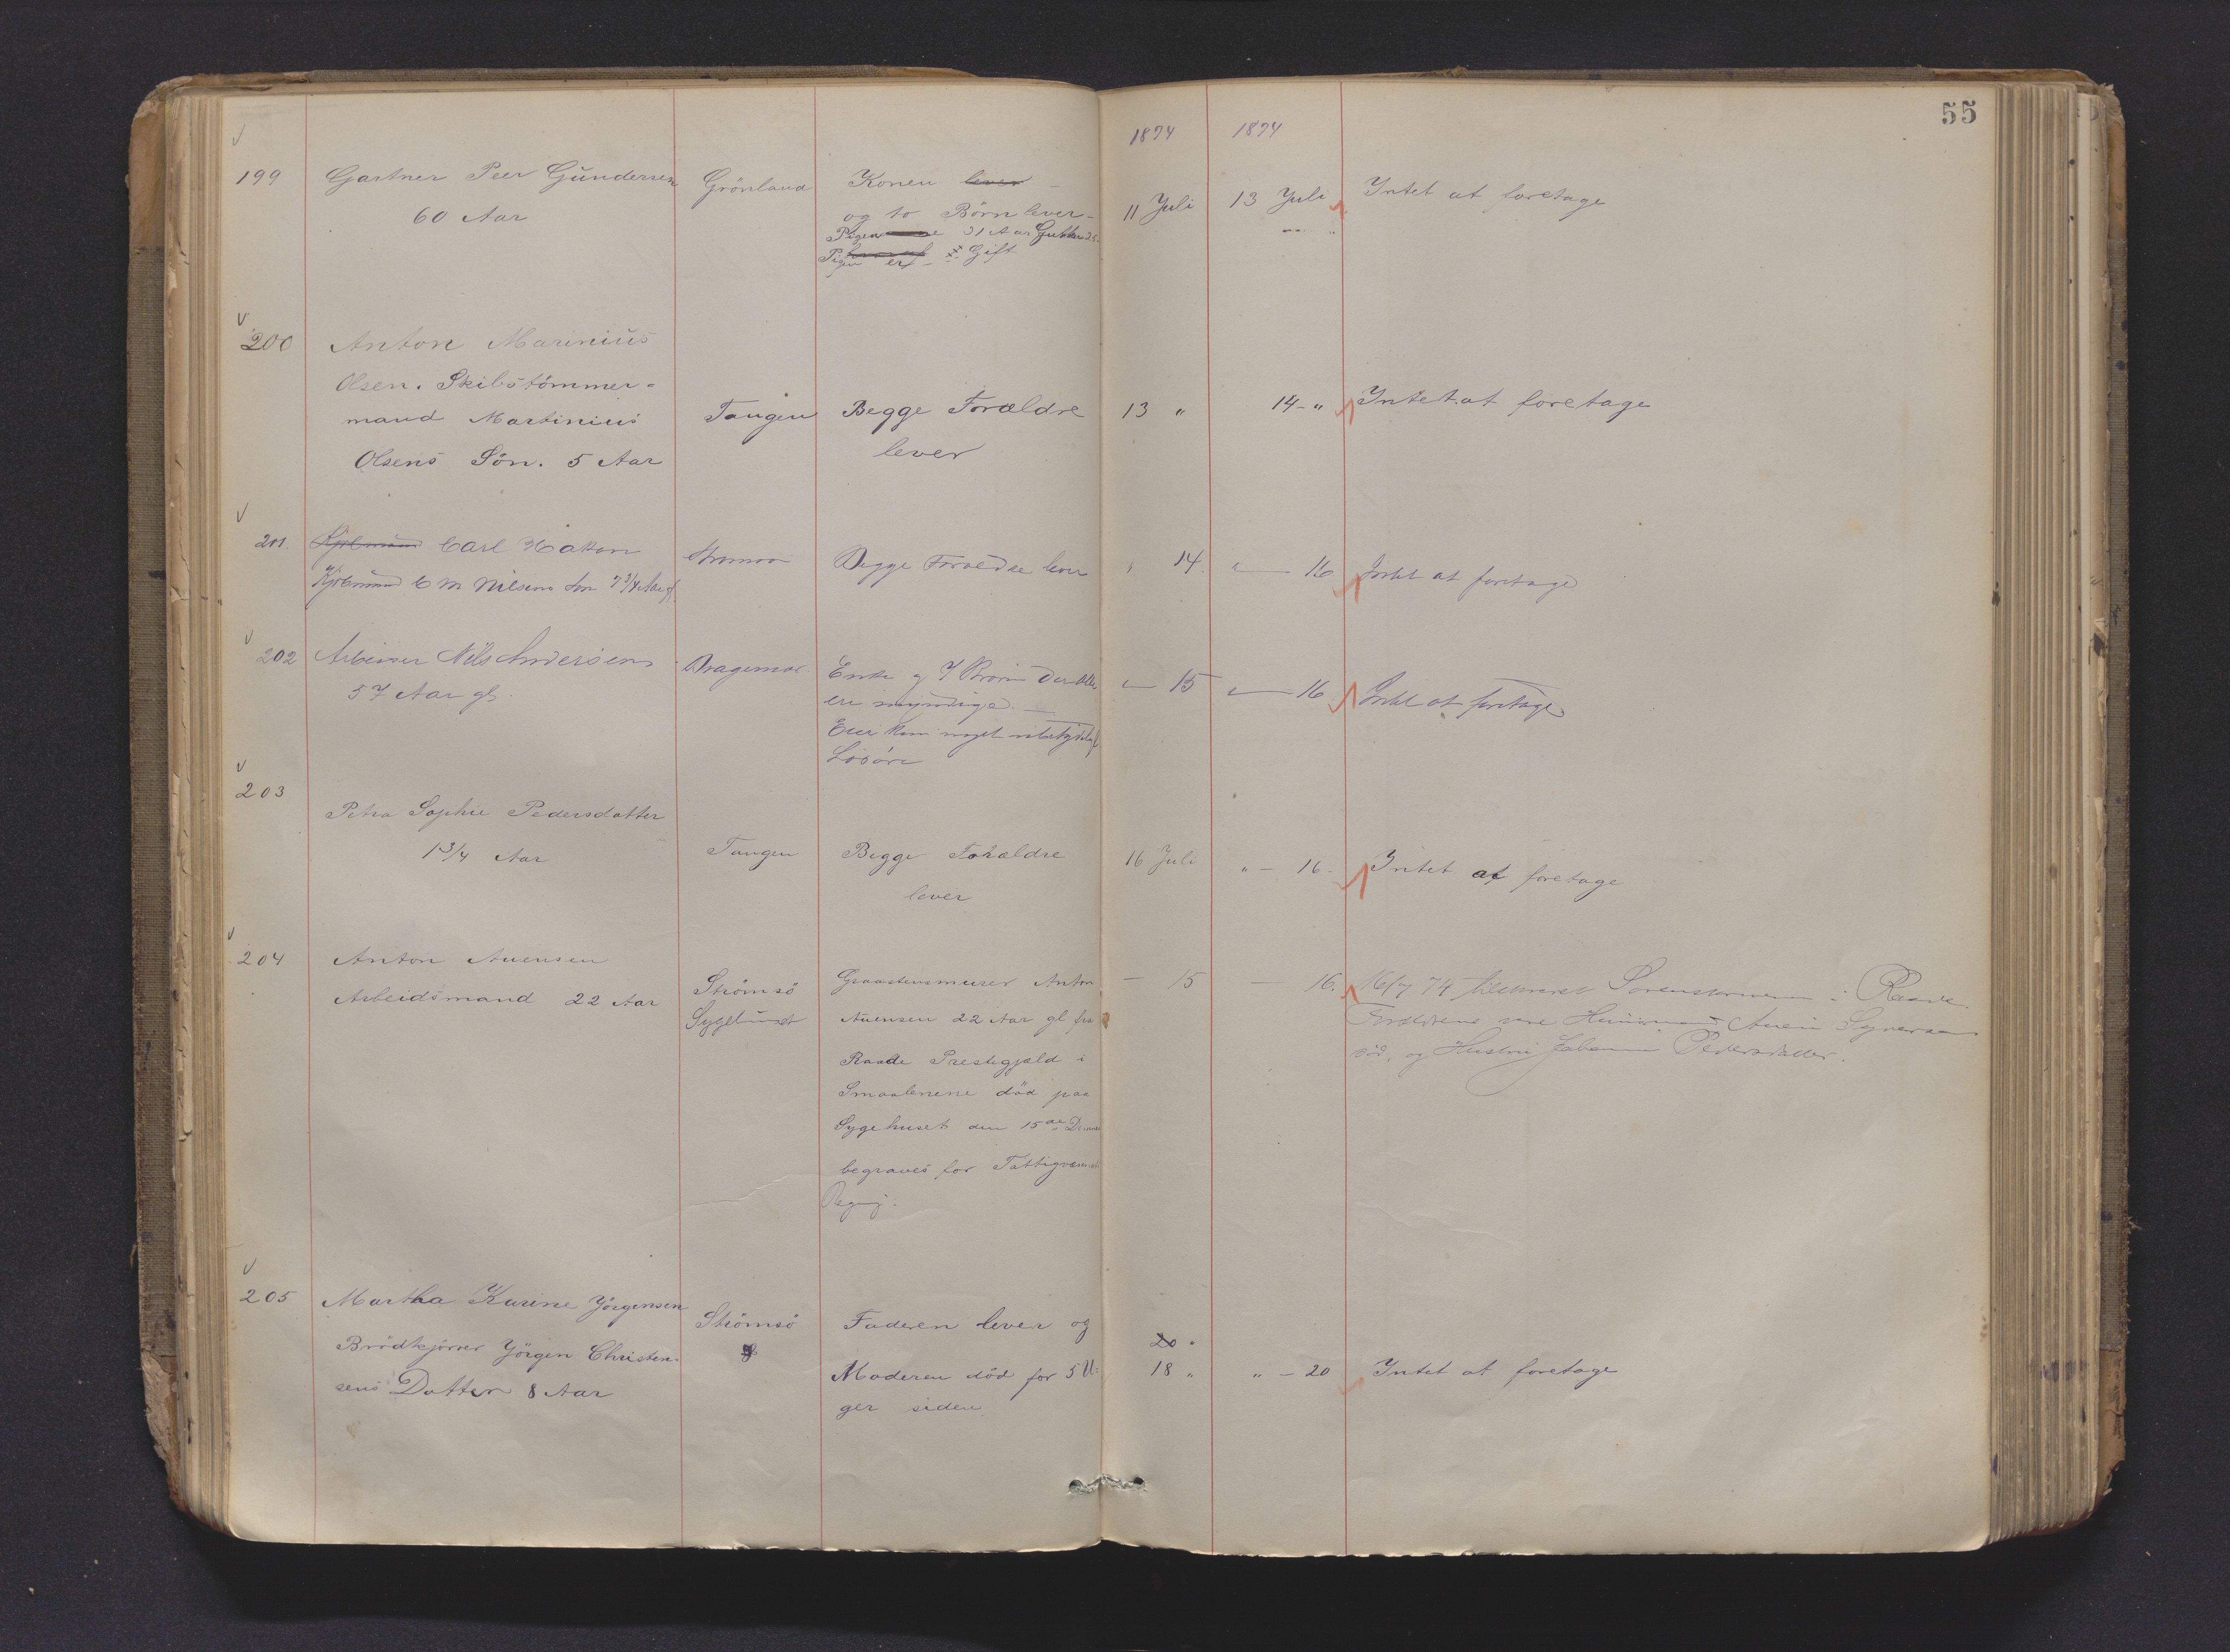 55
1874 1874
199 Gartner Peer Gundersen Grönland Konen lever 11 Juli 13 Juli Intet at foretage
60 Aar og to Börn lever
Pigen 31 Aar Gutten
Pigen er Gift
200 Anton Marinius
Olsen. Skibstömmer-
mand Martinius Tangen Begge Forældre 13 " 14 - " Intet at foretage
Olsens Sön. 5 Aar lever
201 Carl Hakon Begge Forældre lever " 14. " — 16 Intet at foretage
Kjöbmand C M Nilsens Sön 7 3/4 Aar gl
202 Arbeider Nils Andersen Dragernoe Enke og 7 Börn der alle " — 15 " — 16 Intet at foretage
57 Aar gl. ere myndige. —
Eier kun noget ubetydeligt
Lösöre
203
Petra Sophie Pedersdatter
1 3/4 Aar Tangen Begge Forældre 16 Juli " — 16 - Intet at foretage
lever
204 Anton Auensen
Arbeidsmand 22 Aar Strömsö Graastensmurer Anton — 15 — 16. 16/7 74 Sorenskriveren i Raade.
Sygehuset Auensen 22 Aar gl fra Forældrene vare Huusmand Auen
Raade Prestegjæld i död, og Hustru Pedersdatter.
Smaalenene död paa
Sygehuset den 15de Dennes
begraves for Fattigvæsenets
Regning.
205 Martha Karine Jörgensen
Brödkjörer Jörgen Christen- Strömsö Faderen lever og 20 "
sens Datter 8 Aar Moderen död for 5 U- 18 " " — 20 Intet at foretage
ger siden